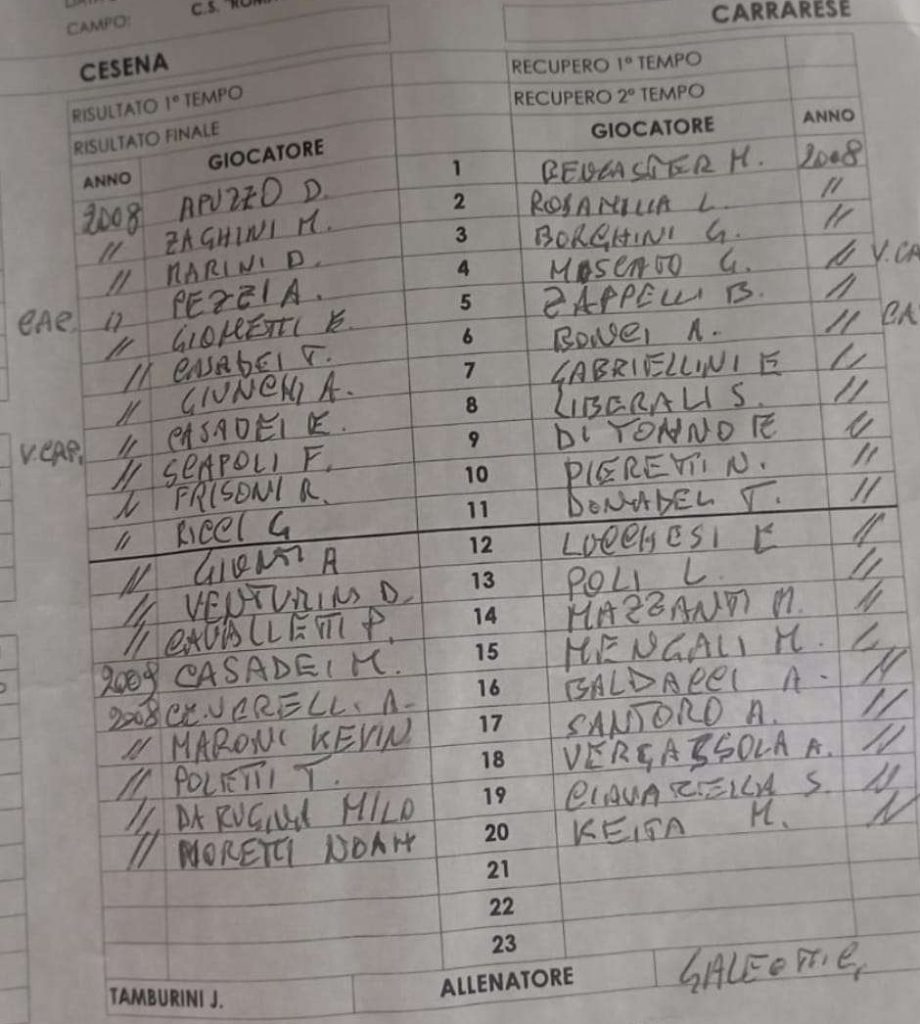 CAMPO: C.S. "ROMA
CESENA CARRARESE
RISULTATO 1° TEMPO RECUPERO 1° TEMPO
RISULTATO FINALE RECUPERO 2° TEMPO
ANNO GIOCATORE GIOCATORE ANNO
2008 APUZZO D. 1 M. 2008
// ZAGHINI M. 2 ROSAMILIA L. //
// MARINI D. 3 BORGHINI G. //
CAP. // PEZZI A. 4 MOSCATO G. // V.CA
// GIOMETTI E. 5 ZAPPELLI B. //
// CASADEI T. 6 BONCI A. // CA
// GIUNCHI A. 7 GABRIELLINI E //
V.CAP. // CASADEI E. 8 LIBERALI S. //
// SCAPOLI F. 9 DI TOMMO E //
// FRISONI R. 10 PIERETTI N. //
// RICCI G 11 DONADEL T. //
// A 12 LUCCHESI E //
// VENTURINI D. 13 POLI L. //
// CAVALLETTI P. 14 MAZZANTI M. //
2009 CASADEI M. 15 MENGALI M. //
2008 A. 16 BALDACCI A. //
// MARONI KEVIN 17 SANTORO A. //
// POLETTI T. 18 VERGASSOLA A. //
// MILO 19 S. //
// MORETTI NOAH 20 KEITA M. //
21
22
23
TAMBURINI J. ALLENATORE